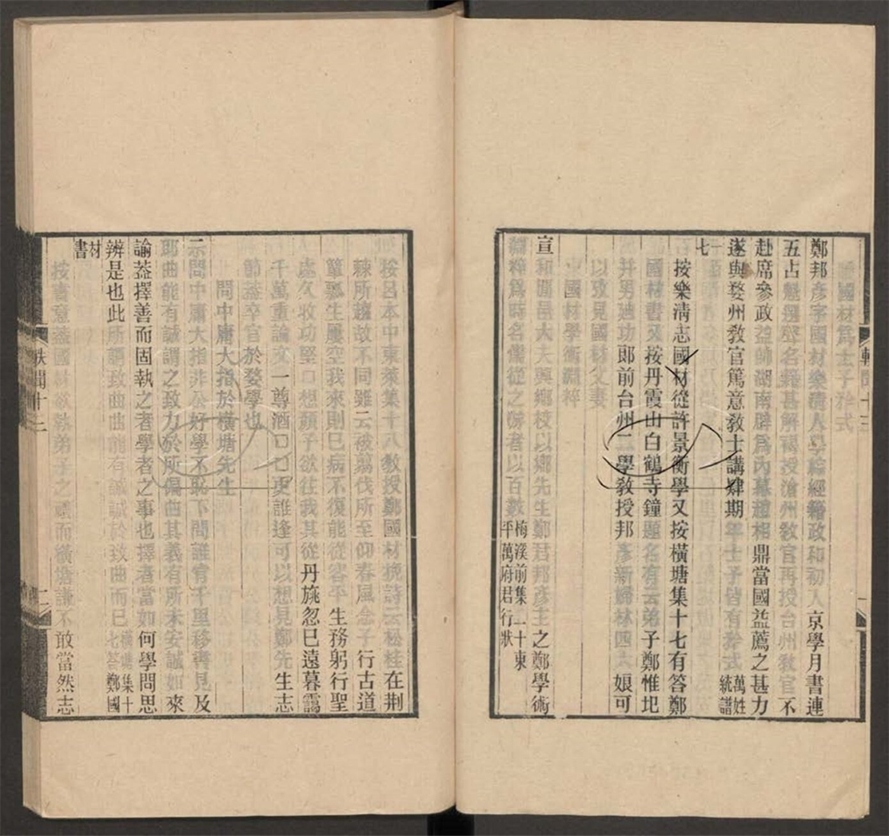 國材為士子矜式
鄭邦彥字國材樂清人學綸經政和初入京學月書連
五占魁選歷名籍甚解褐授滄州教官再授台州教官不
赴席參政益帥湖南辟為內幕趙相鼎當國益薦之甚力
遂與婺州教官篤意教士講肄期年士子皆有矜式萬姓統譜
一七
按樂清志國材從許景衡學又按橫塘集十七有答鄭
國材書又按丹霞山白鶴寺鐘題名有云弟子鄭惟圯
并男迪功郎前台州二學教授邦彥新婦林四六娘可
以攷見國材父妻
國材學術淵粹
宣和間邑大夫與鄉校以鄭先生鄭君邦彥主之鄭學術
淵粹為時名儒從之游者以百數梅溪前集二十東平萬府君行狀
軼聞十三
一
按呂本中東萊集十八教授鄭國材挽詩云松桂在荊
棘所趨故不同雖云被翦伐所至仰春風念子行古道
簞瓢生屢空我來則已病不復能從容平生務躬行聖
處久收功堅口想顏子欲往我其從丹旐忽已遠暮靄
千萬重論文一尊酒口口更誰逢可以想見鄭先生志
節蓋卒官於婺學也
問中庸大指於橫塘先生
示問中庸大指非公好學不恥下問誰肯千里移書見及
即曲能有誠謂之致力於所偏曲其義有所未安誠如來
諭蓋擇善而固執之者學者之事也擇者當如何學問思
辨是也此所謂致曲曲能有誠誠於致曲而已橫塘集十七答鄭國
材書
按書意蓋國材欲執弟子之禮而橫塘謙不敢當然志
軼聞十三
二